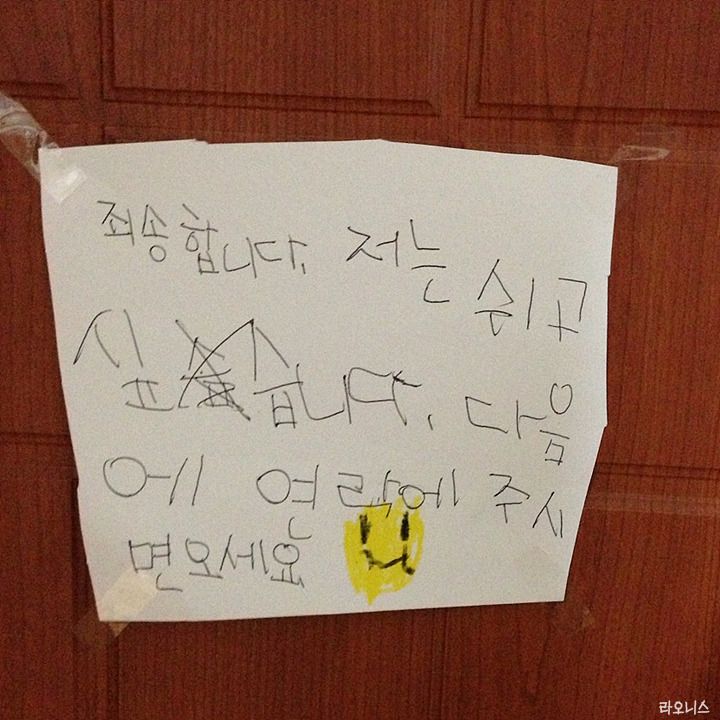 죄송합니다. 저는 쉬고
싶습니다. 다음
에 연락에 주시
면오세요
라오니스